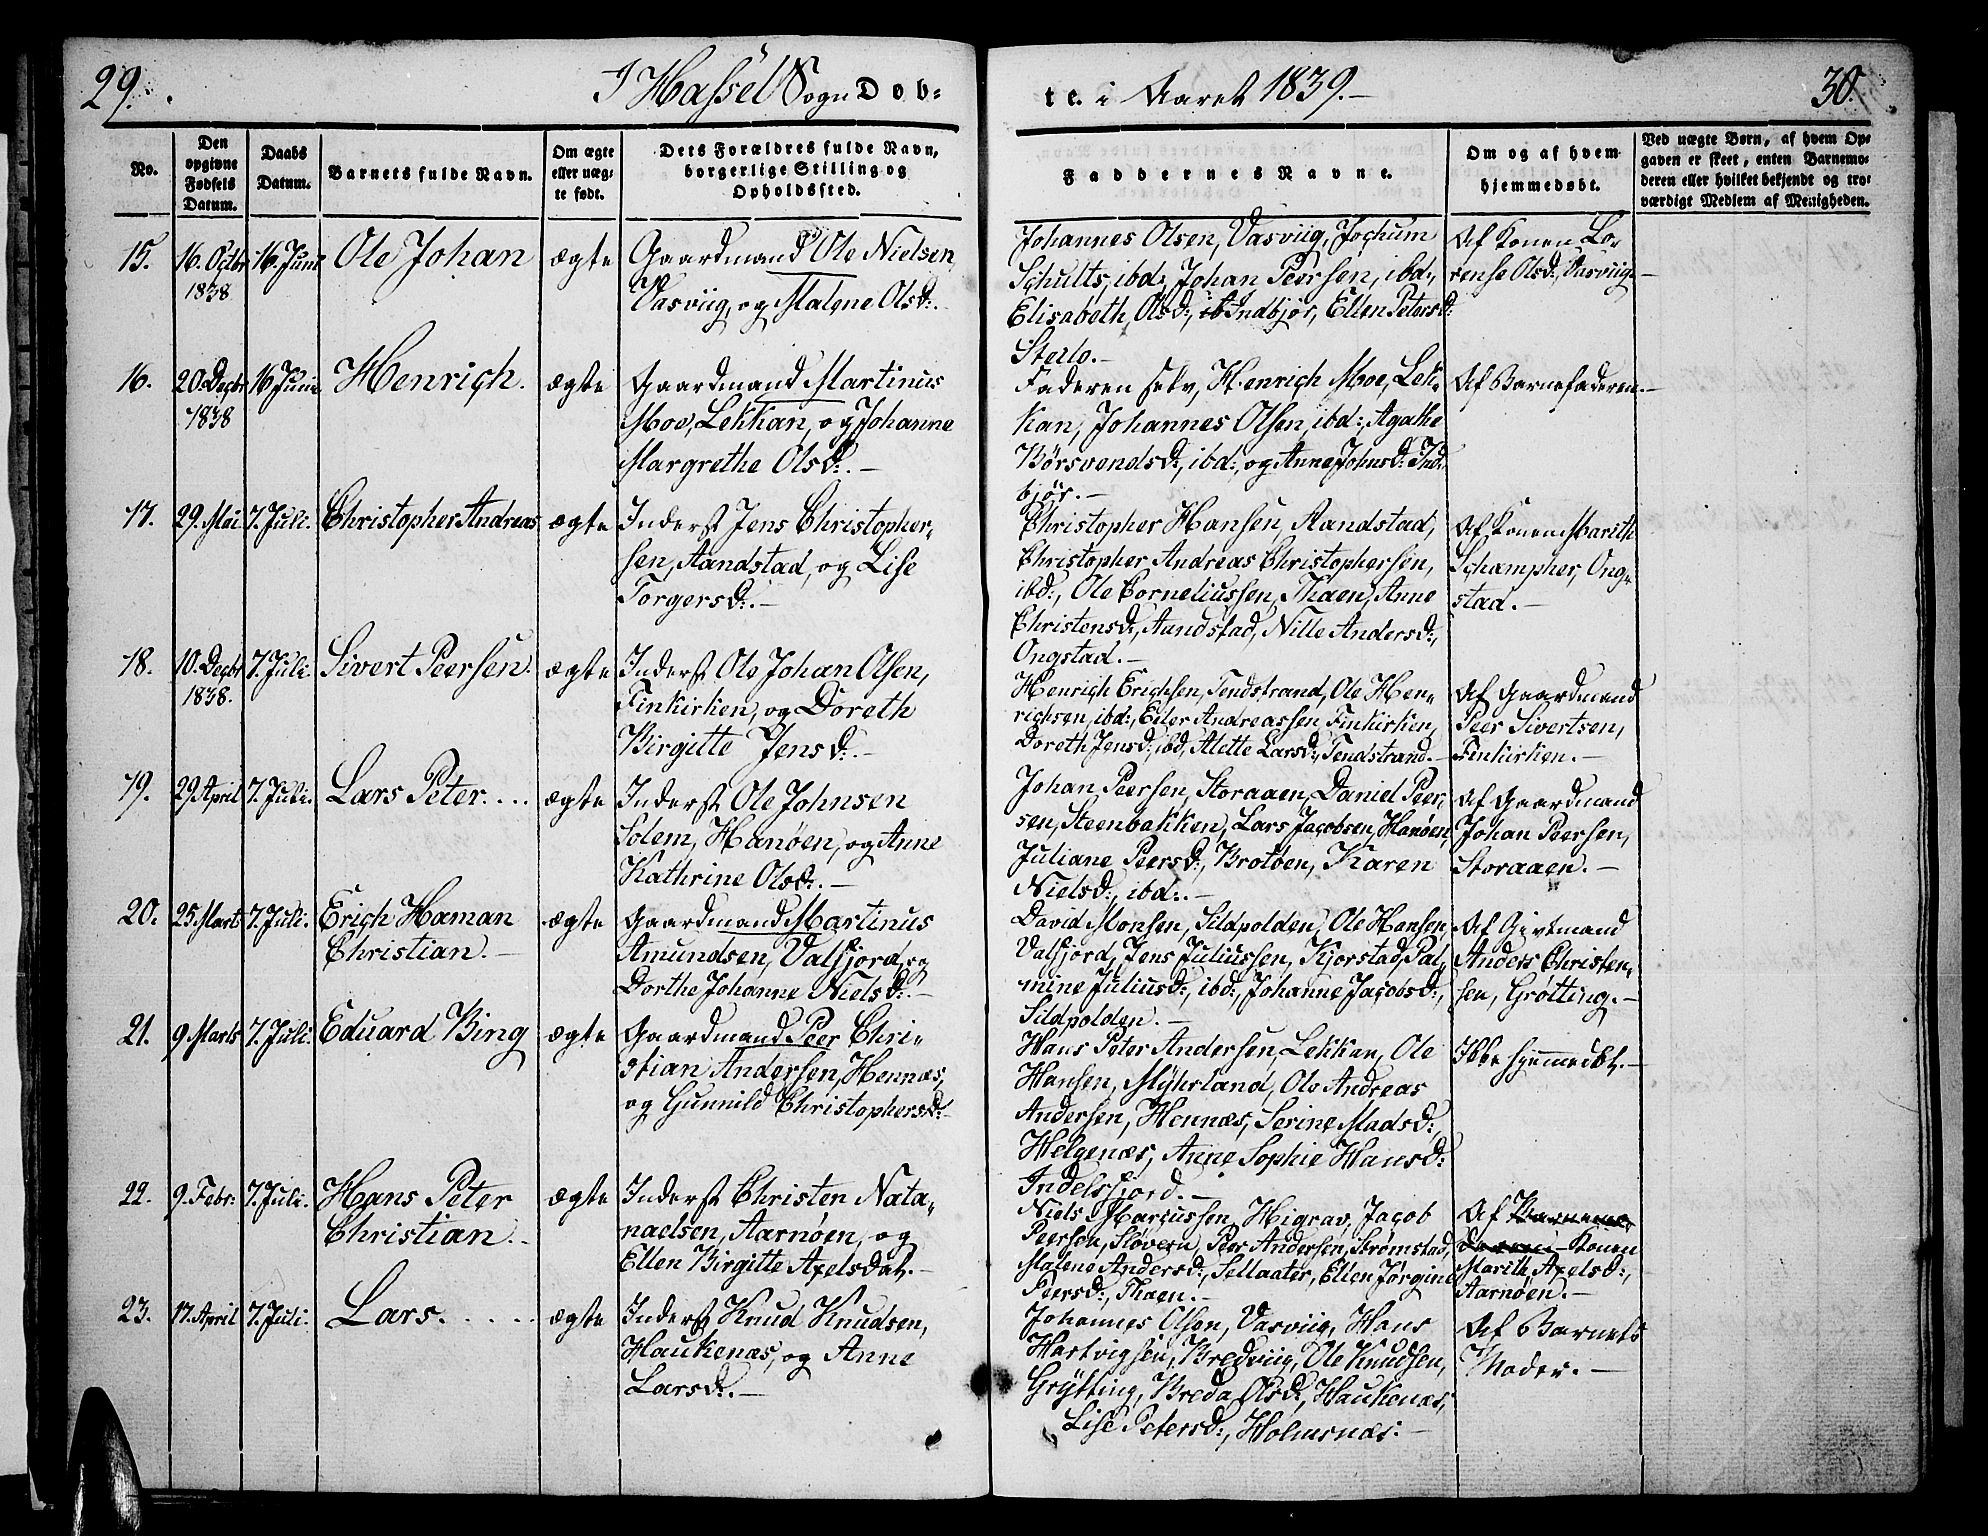 29.
I Hassel Sogn Døb-
te. i Aaret 1839.-
30.
No.
Den
opgivne
Fødsels
Datum.
Daabs
Datum.
Barnets fulde Navn.
Om ægte
eller uæg-
te født.
Dets Forældres fulde Navn,
borgerlige Stilling og
Opholdssted.
Faddernes Navne.
Om og af hvem
hjemmedøbt.
Ved uægte Børn, af hvem Op-
gaven er skeet, enten Barnemo-
deren eller hvilket bekjendt og tro-
værdigt Medlem af Menigheden.
15.
16. Octbr
1838
16. Juni
Ole Johan
ægte
Gaardmand Ole Nielsen
Vasviig, og Malene Olsd:.
Johannes Olsen, Vasviig, Jochum
Schults, ibd:, Johan Peersen, ibd:,
Elisabeth, Olsd:, Indbjør, Ellen Petersd:
Sterlo.-
Af Konen Lo-
rense Olsd:, Vasviig-
16.
20. Decbr
1838
16 Juni
Henrich.
ægte
Gaardmand Martinus
Moe, Lekkan, og Johanne
Margrethe Olsd:.-
Faderen selv, Henrich Moe, Lek-
kan, Johannes Olsen, ibd:, Agathe
Børsvendsd:, ibd:, og Anne Johnsd: Ind-
bjør.-
Af Barnefaderen.-
17.
29. Mai
7. Juli.
Christopher Andreas
ægte
Inderst Jens Christopher-
sen, Aandstad, og Lise
Torgersd:.-
Christopher Hansen, Aandstad,
Christopher Andreas Christophersen,
ibd:, Ole Corneliussen, Thaen, Anne
Christensd:, Aandstad, Nille Andersd:,
Ongstad.-
Af Konen Marith
Schampher, Ong-
stad.-
18.
10. Decbr
1838.
7. Juli.
Sivert Peersen.
ægte
Inderst Ole Johan Olsen,
Finkirken, og Doreth
Birgitte Jensd:.-
Henrich Erichsen, Tendstrand, Ole Hen-
richsen, ibd:, Eiler Andreassen Finkirken,
Doreth Jensd:, ibd, Alette Larsd:, Tendstrand.-
Af Gaardmand
Peer Sivertsen,
Finkirken.-
19.
29 April
7. Juli.
Lars Peter....
ægte
Inderst Ole Johnsen
Solem, Hanøen, og Anne
Kathrine Olsd:.-
Johan Peersen, Storaaen, Daniel Peer-
sen, Steenbakken, Lars Jacobsen, Hanøen,
Juliane Peersd:, Brotøen, Karen
Nielsd:, ibd:.-
Af Gaardmand
Johan Peersen,
Storaaen.-
20.
25. Marts
7. Juli.
Erich Haman
Christian.-
ægte
Gaardmand Martinus
Amundsen, Valfjord, og
Dorthe Johanne Nielsd:.-
David Monsen, Sildpolden, Ole Hansen,
Valfjord, Jens Juliussen, Kjorstad, Pal-
mine Juliusd:, ibd:, Johanne Jacobsd:,
Sildpolden.-
Af Givtmand
Anders Christen-
sen, Grøtting.-
21.
9. Marts
7. Juli.
Eduard Bing
ægte
Gaardmand Peer Chri-
stian Andersen, Hennæs,
og Gunnild Christophersd:-
Hans Peter Andersen, Lekkan, Ole
Hansen, Myhrland, Ole Andreas
Andersen, Hennæs, Serine Madsd:,
Helgenæs, Anne Sophie Hansd:
Indelsfjord.-
Ikke hjemmedbt.-
22.
9. Febr:
7. Juli.
Hans Peter
Christian.-
ægte
Inderst Christen Nata-
naelsen, Aarnøen, og
Ellen Birgitte Axelsdat.-
Niels Marcussen, Higrav, Jacob
Peersen, Sløveren, Peer Andersen, Strømstad,
Malene Andersd:, Sellaater, Ellen Jørgine
Peersd:, Thaen.-
Af Konen
Marith Axelsd:,
Aarnøen.-
23.
17. April
7. Juli.
Lars.....
ægte
Inderst Knud Knudsen,
Haukenæs, og Anne
Larsd:.-
Johannes Olsen, Vasviig, Hans
Hartvigsen, Bredviig, Ole Knudsen,
Grytting, Breda Olsd:, Haukenæs,
Lise Petersd:, Holmsnæs.-
Af Barnets
Moder.-